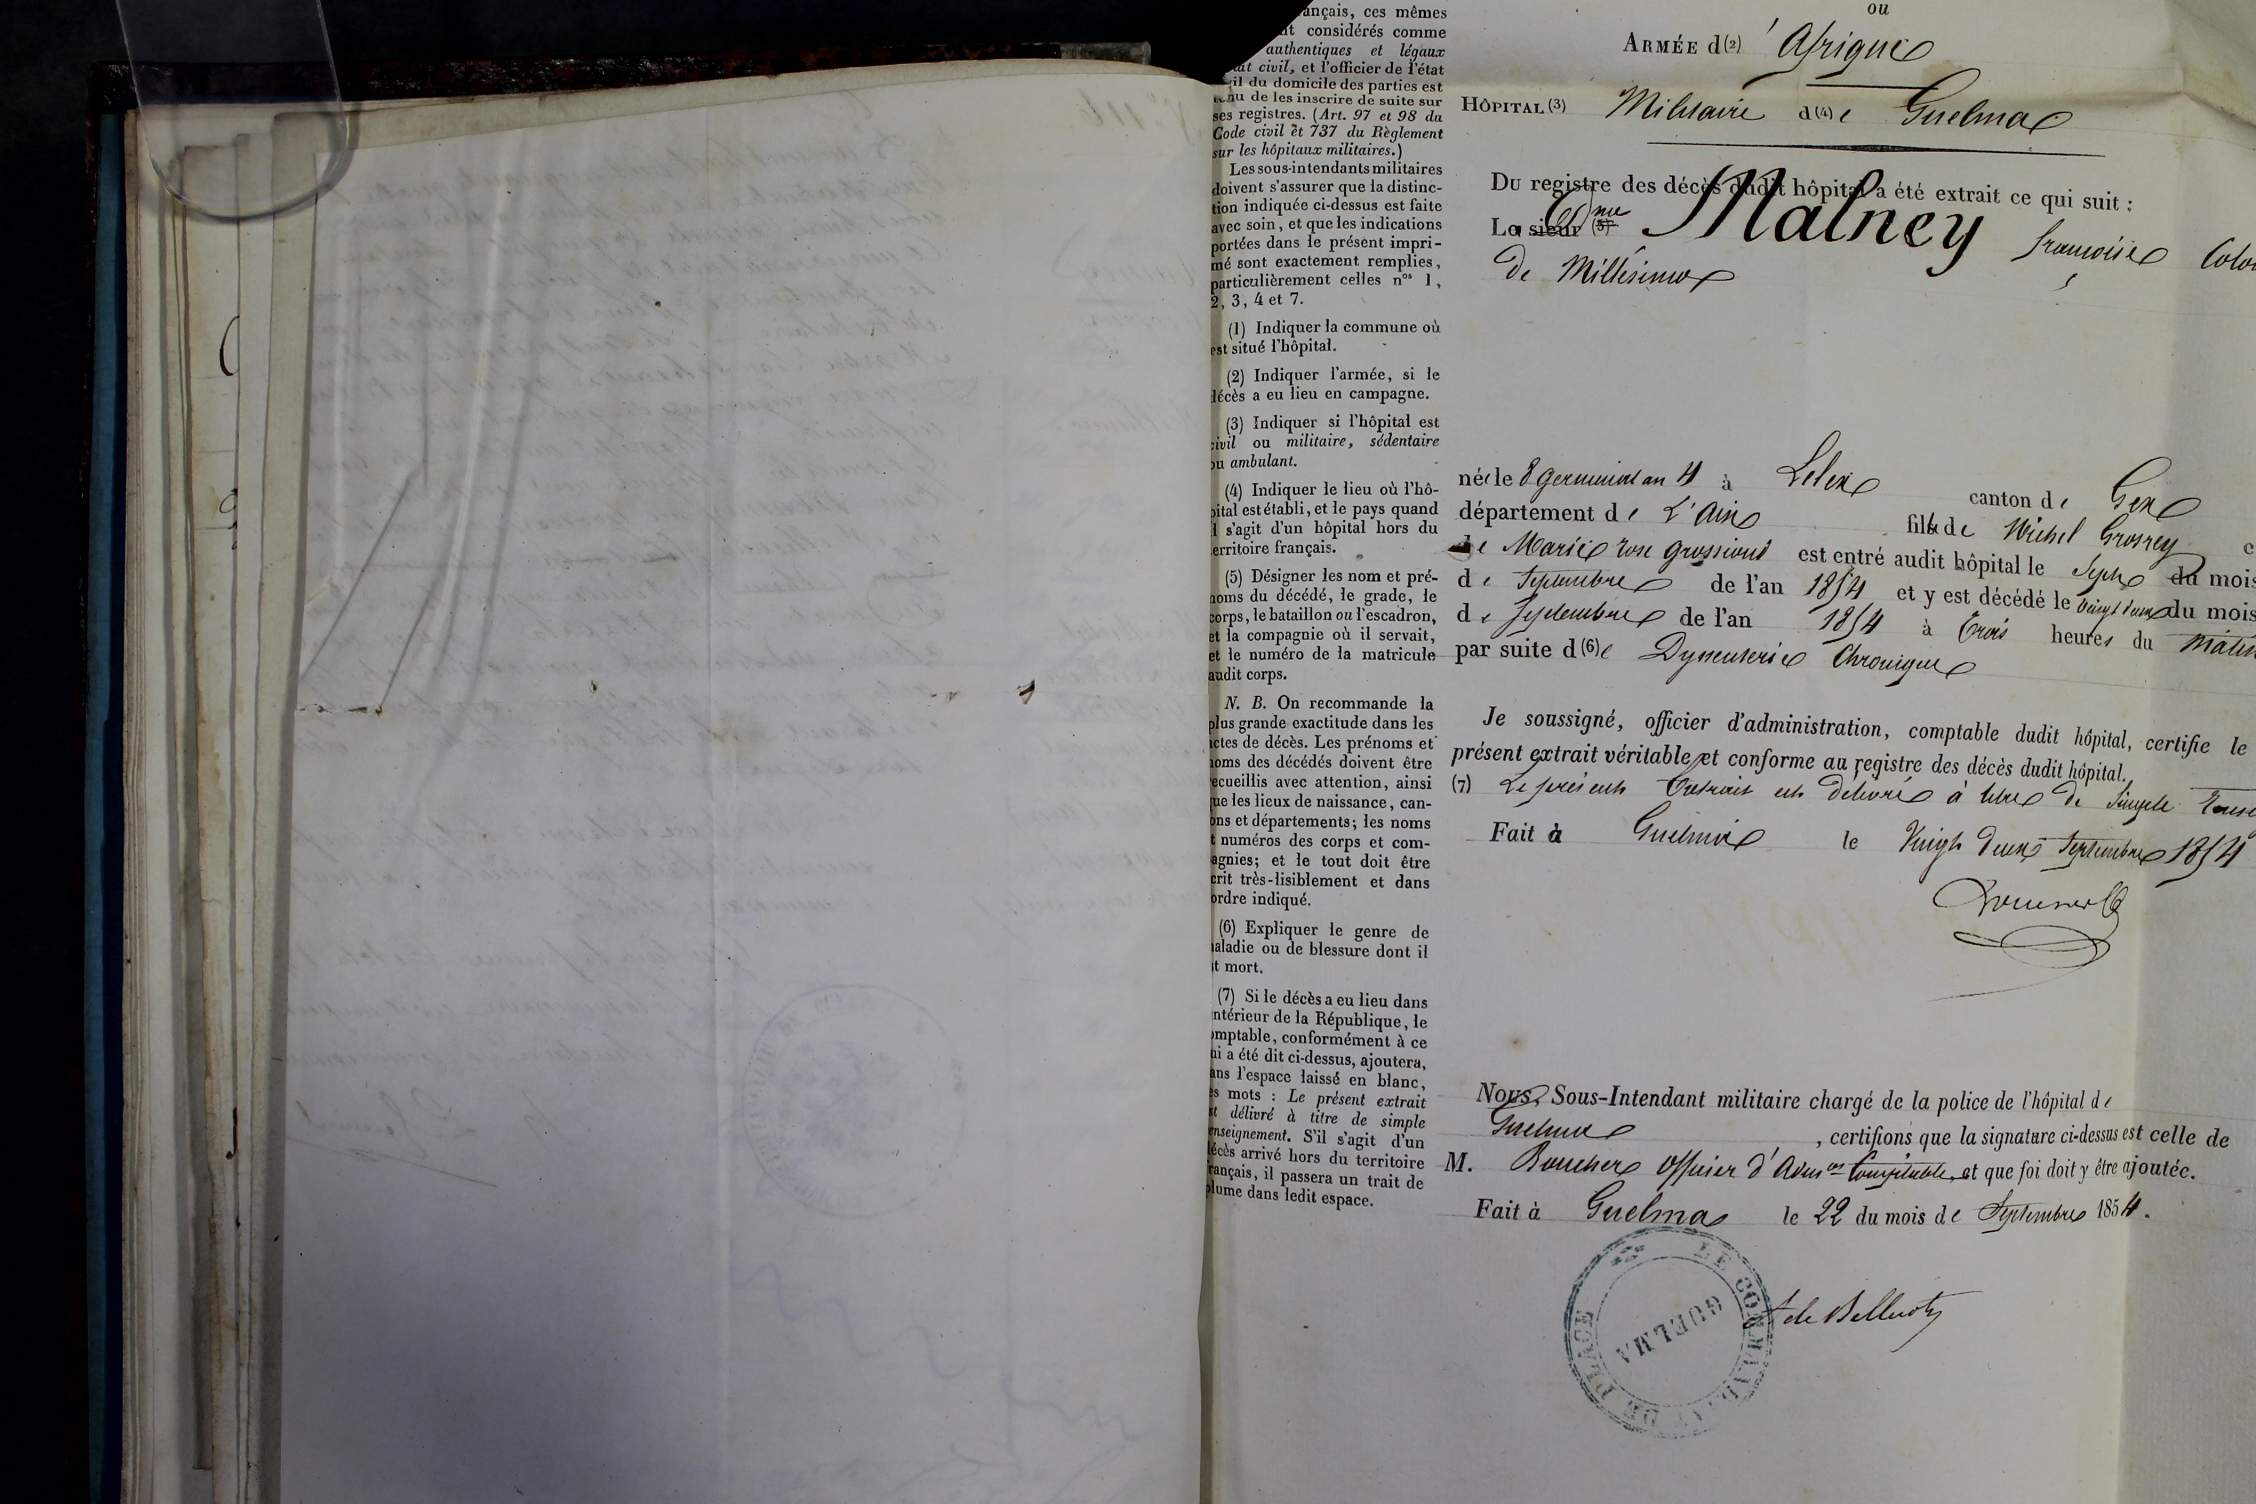 ançais, ces mêmes
nt considérés comme
authentiques et légaux
at civil, et l'officier de l'état
il du domicile des parties est
nu de les inscrire de suite sur
ses registres. (Art. 97 et 98 du
Code civil et 737 du Règlement
sur les hôpitaux militaires.)
Les sous-intendants militaires
doivent s'assurer que la distinc-
tion indiquée ci-dessus est faite
avec soin, et que les indications
portées dans le présent impri-
mé sont exactement remplies,
particulièrement celles nos 1,
2, 3, 4 et 7.
(1) Indiquer la commune où
est situé l'hôpital.
(2) Indiquer l'armée, si le
décès a eu lieu en campagne.
(3) Indiquer si l'hôpital est
civil ou militaire, sédentaire
ou ambulant.
(4) Indiquer le lieu où l'hô-
pital est établi, et le pays quand
il s'agit d'un hôpital hors du
territoire français.
(5) Désigner les nom et pré-
noms du décédé, le grade, le
corps, le bataillon ou l'escadron,
et la compagnie où il servait,
et le numéro de la matricule
audit corps.
N. B. On recommande la
plus grande exactitude dans les
actes de décès. Les prénoms et
noms des décédés doivent être
recueillis avec attention, ainsi
que les lieux de naissance, can-
ons et départements; les noms
t numéros des corps et com-
agnies; et le tout doit être
crit très-lisiblement et dans
ordre indiqué.
(6) Expliquer le genre de
maladie ou de blessure dont il
st mort.
(7) Si le décès a eu lieu dans
intérieur de la République, le
omptable, conformément à ce
ui a été dit ci-dessus, ajoutera,
ans l'espace laissé en blanc,
es mots : Le présent extrait
st délivré à titre de simple
enseignement. S'il s'agit d'un
décès arrivé hors du territoire
rançais, il passera un trait de
plume dans ledit espace.
ou
ARMÉE d(2) 'Afrique
HÔPITAL (3) Militaire d(4)e Guelma
Du registre des décès dudit hôpital a été extrait ce qui suit :
La sieur (5) Dme Malney françoise Colon
de Millésimo
née le 8 germinal an 4 à Lelex canton de Gex
département de L'Ain fille de Michel Grosrey e
de Marie rose grossiord est entré audit hôpital le Sept du mois
de Septembre de l'an 1854 et y est décédé le vingt deux du mois
de Septembre de l'an 1854 à trois heures du Matin
par suite d(6)e Dyssenterie Chronique
Je soussigné, officier d'administration, comptable dudit hôpital, certifie le
présent extrait véritable et conforme au registre des décès dudit hôpital.
(7) Le présent Extrait est délivré à titre de Simple
Fait à Guelma le Vingt deux Septembre 1854
Nous, Sous-Intendant militaire chargé de la police de l'hôpital de
Guelma, certifions que la signature ci-dessus est celle de
M. Boucher officier d'Admon Comptable, et que foi doit y être ajoutée.
Fait à Guelma le 22 du mois de Septembre 1854.
LE COMMANDANT DE PLACE
GUELMA